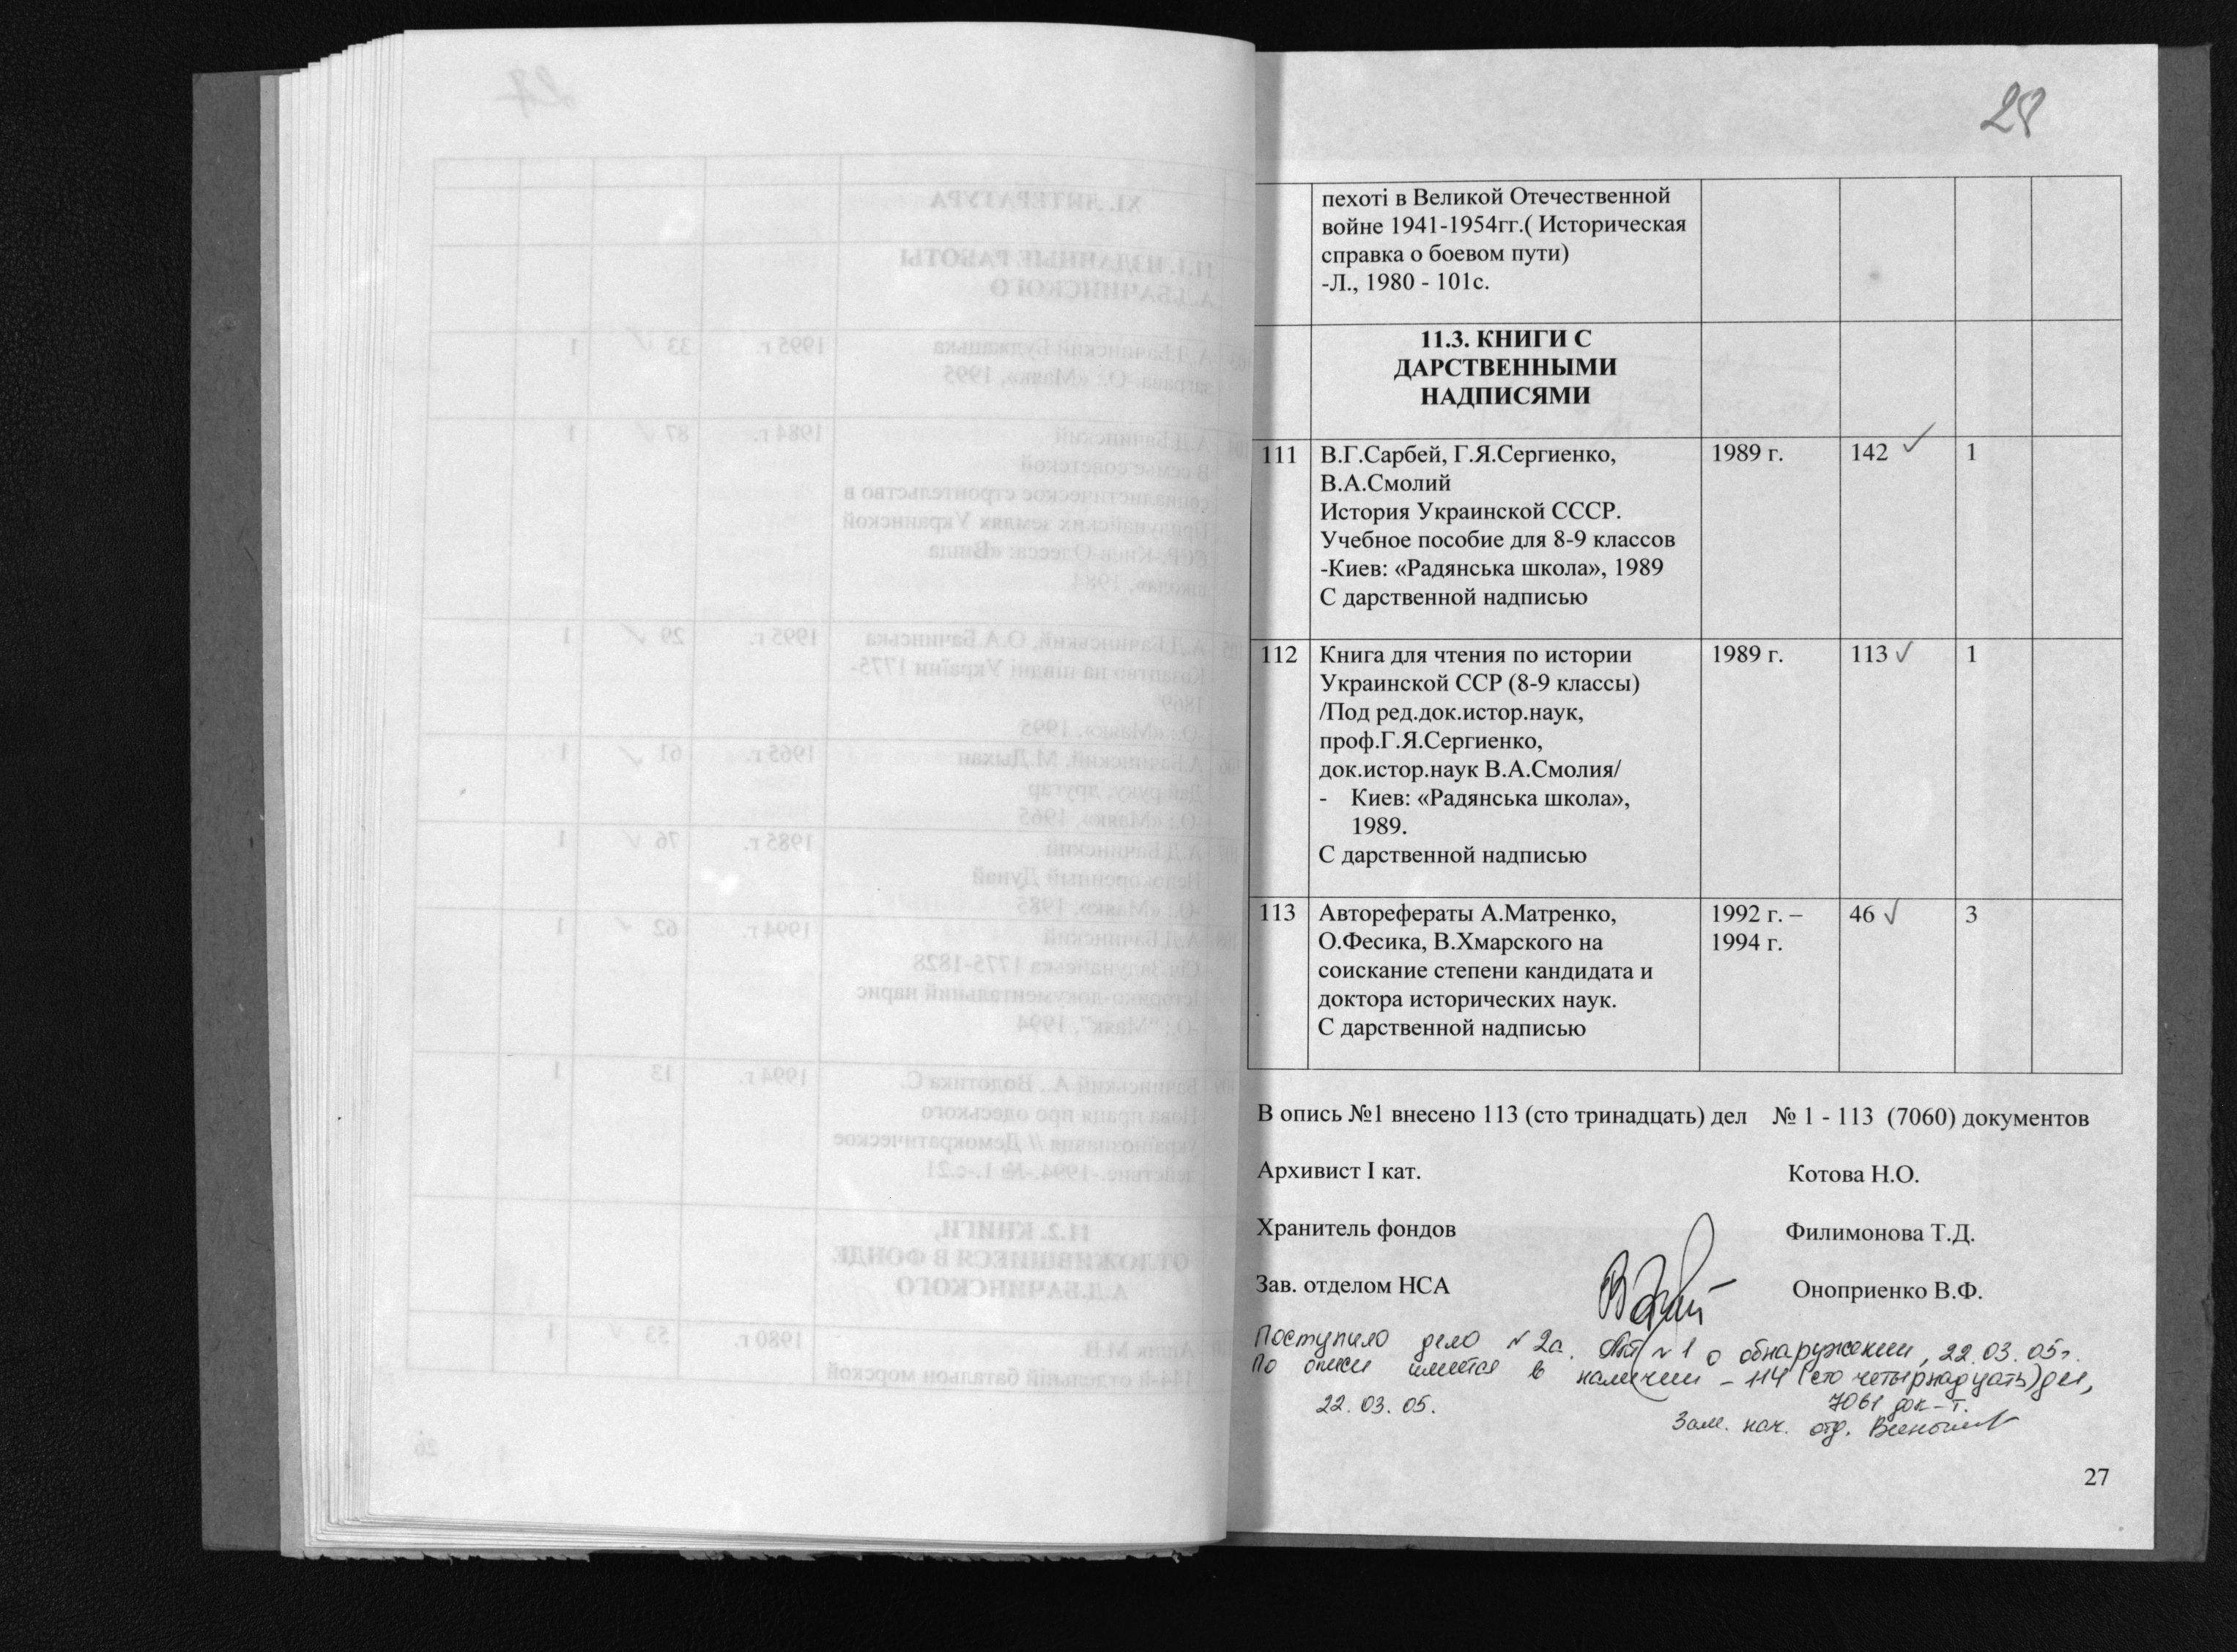 28
пехоті в Великой Отечественной
войне 1941-1954гг.( Историческая
справка о боевом пути)
-Л., 1980 - 101с.
11.3. КНИГИ С
ДАРСТВЕННЫМИ
НАДПИСЯМИ
111 В.Г.Сарбей, Г.Я.Сергиенко, 1989 г. 142 ✓ 1
В.А.Смолий
История Украинской СССР.
Учебное пособие для 8-9 классов
-Киев: «Радянська школа», 1989
С дарственной надписью
112 Книга для чтения по истории 1989 г. 113 ✓ 1
Украинской ССР (8-9 классы)
/Под ред.док.истор.наук,
проф.Г.Я.Сергиенко,
док.истор.наук В.А.Смолия/
- Киев: «Радянська школа»,
1989.
С дарственной надписью
113 Авторефераты А.Матренко, 1992 г. – 46 ✓ 3
О.Фесика, В.Хмарского на 1994 г.
соискание степени кандидата и
доктора исторических наук.
С дарственной надписью
В опись №1 внесено 113 (сто тринадцать) дел № 1 - 113 (7060) документов
Архивист I кат. Котова Н.О.
Хранитель фондов Филимонова Т.Д.
Зав. отделом НСА Оноприенко В.Ф.
Поступило дело № 2а. Акт № 1 о обнаружении, 22.03.05г.
По описи имеется в наличии – 114 (сто четырнадцать) дел,
7061 док-т.
22.03.05.
Зам. нач. отд.
27